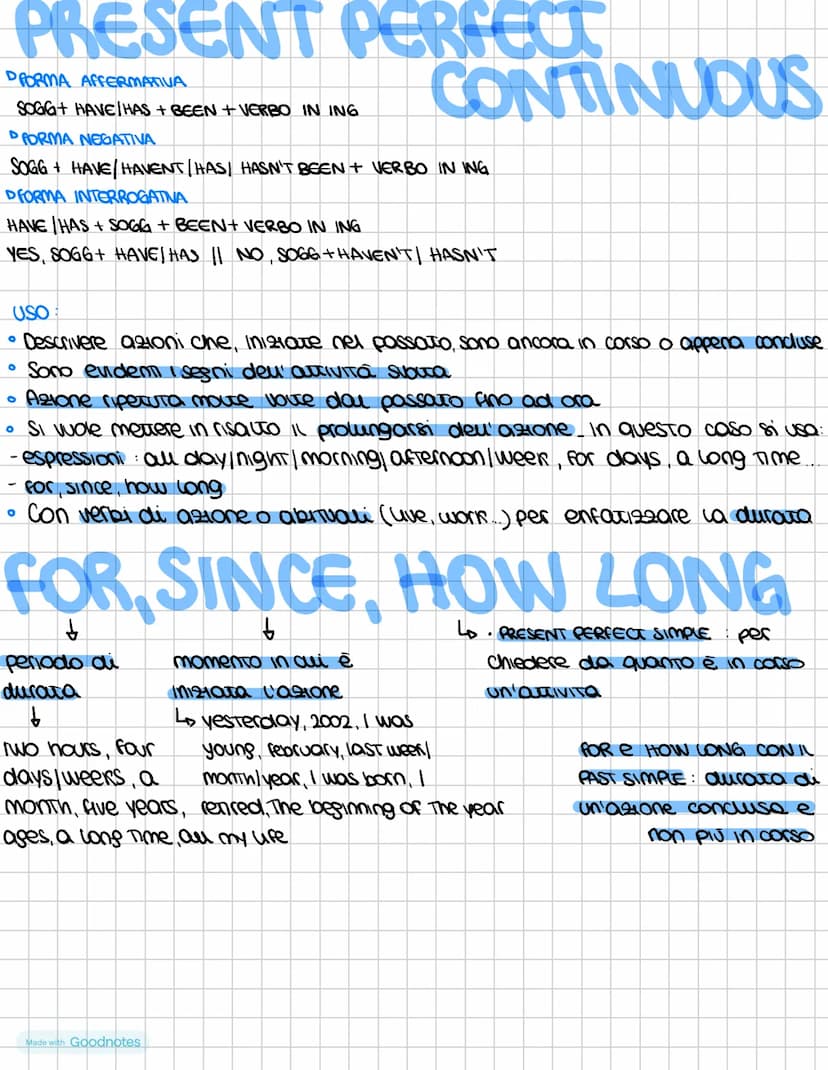 PRESENT PERFECT
CONTINUOUS
FORMA AFFERMATIVA
SOGG + HAVE/HAS + BEEN + VERBO IN ING
FORMA NEGATIVA
SOGG + HAVE/HAVENT/HAS/ HASN'T BEEN + VERBO IN ING
FORMA INTERROGATIVA
HAVE/HAS + SOGG + BEEN + VERBO IN ING
YES, SOGG + HAVE/HAS || NO, SOGG + HAVEN'T/ HASN'T
USO:
• Descrivere azioni che, iniziate nel passato, sono ancora in corso o appena concluse
• Sono evidenti i segni dell'attività subita
• Azione ripetuta molte volte dal passato fino ad ora
• Si vuole mettere in risalto il prolungarsi dell'azione. In questo caso si usa:
- espressioni: all day/night/morning/afternoon/week, for days, a long time...
- for, since, how long
• Con verbi di azione o abituali (live, work...) per enfatizzare la durata
FOR, SINCE, HOW LONG
↓ ↓ ↳ • PRESENT PERFECT SIMPLE : per
periodo di momento in cui è chiedere da quanto è in corso
durata iniziata l'azione un'attività
↓ ↳ yesterday, 2002, I was
two hours, four young, february, last week/ FOR e HOW LONG CON IL
days/weeks, a month/year, I was born, I PAST SIMPLE: durata di
month, five years, retired, the beginning of the year un'azione conclusa e
ages, a long time, all my life non più in corso
Made with Goodnotes